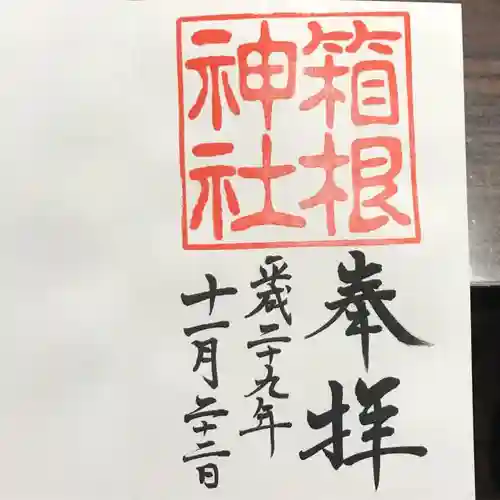 箱根
神社
奉拝
平成二十九年
十一月二十三日